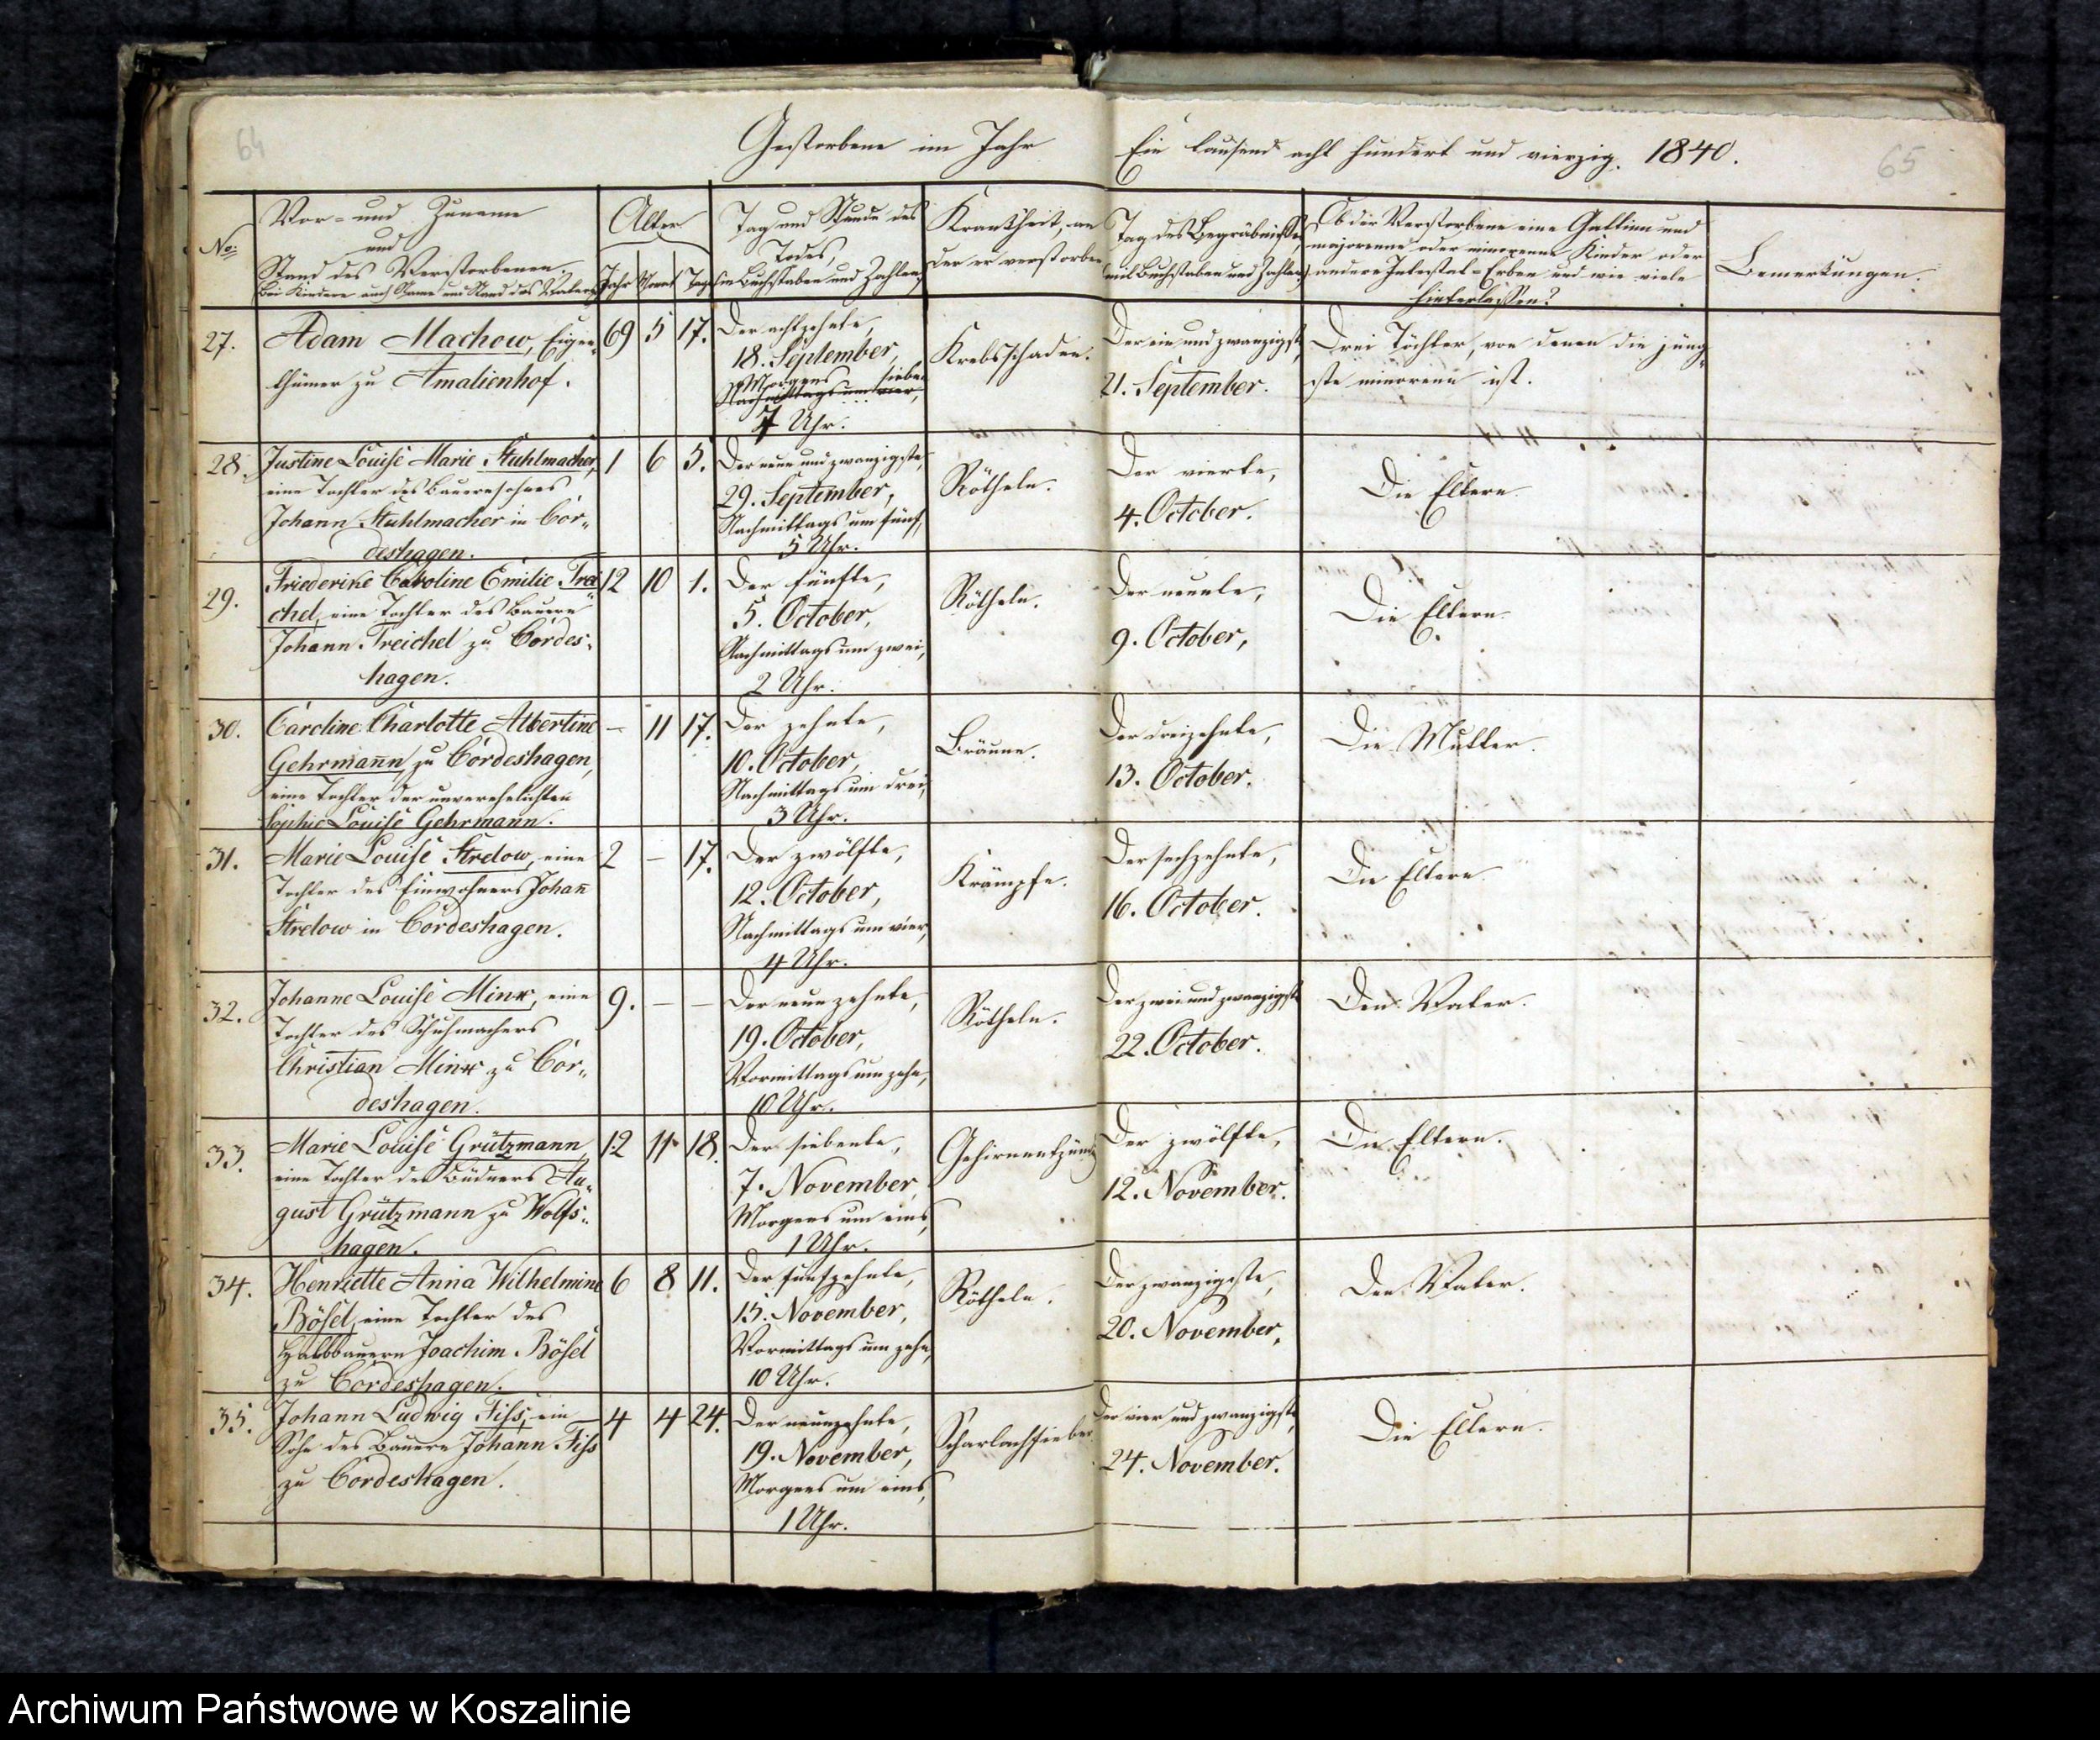 64
Gestorbene im Jahr
Ein tausend acht hundert und vierzig. 1840.
65
No:
Vor- und Zuname
und
Stand des Verstorbenen,
bei Kindern auch Name und Stand des Vaters
Alter
Jahr Monat Tage
Tag und Stunde des
Todes,
in Buchstaben und Zahlen
Krankheit, an
der er verstorben
Tag des Begräbnisses
mit Buchstaben und Zahlen
Ob der Verstorbene eine Gattinn und
majorenne oder minorenne Kinder oder
andere Intestat-Erben und wie viele
hinterlassen?
Bemerkungen.
27.
Adam Machow, Eigen-
thümer zu Amalienhof.
69 5 17.
Der achtzehnte,
18. September,
Morgens sieben
Nachmittags um vier,
7 Uhr.
Krebsschaden.
Der ein und zwanzigste,
21. September.
Drei Töchter, von denen die jüng-
ste minorenn ist.
28.
Justine Louise Marie Stuhlmacher,
eine Tochter des Bauernsohnes
Johann Stuhlmacher in Cör-
deshagen.
1 6 5.
Der neun und zwanzigste,
29. September,
Nachmittags um fünf,
5 Uhr.
Rötheln.
Der vierte,
4. October.
Die Eltern.
29.
Friederike Caroline Emilie Trei-
chel, eine Tochter des Bauern
Johann Treichel zu Cördes-
hagen.
12 10 1.
Der fünfte,
5. October,
Nachmittags um zwei,
2 Uhr.
Rötheln.
Der neunte,
9. October,
Die Eltern.
30.
Caroline Charlotte Albertine
Gehrmann, zu Cördeshagen,
eine Tochter der unverehelichten
Sophie Louise Gehrmann.
– 11 17.
Der zehnte,
10. October,
Nachmittags um drei,
3 Uhr.
Bräune.
Der dreizehnte,
13. October.
Die Mutter.
31.
Marie Louise Strelow, eine
Tochter des Einwohners Johan̄
Strelow in Cördeshagen.
2 – 17.
Der zwölfte,
12. October,
Nachmittags um vier,
4 Uhr.
Krämpfe.
Der sechzehnte,
16. October.
Die Eltern.
32.
Johanne Louise Mink, eine
Tochter des Schuhmachers
Christian Mink zu Cör-
deshagen.
9. – –
Der neunzehnte,
19. October,
Vormittags um zehn,
10 Uhr.
Rötheln.
Der zwei und zwanzigste
22. October.
Den Vater.
33.
Marie Louise Grützmann,
eine Tochter des Büdners Au-
gust Grützmann zu Wolfs-
hagen.
12 11 18.
Der siebente,
7. November,
Morgens um eins,
1 Uhr.
Gehirnentzünd
Der zwölfte,
12. November.
Die Eltern.
34.
Henriette Anna Wilhelmine
Bösel, eine Tochter des
Halbbauern Joachim Bösel
zu Cördeshagen.
6 8 11.
Der funfzehnte,
15. November,
Vormittags um zehn,
10 Uhr.
Rötheln.
Der zwanzigste,
20. November,
Den Vater.
35.
Johann Ludwig Fiss, ein
Sohn des Bauern Johann Fiss
zu Cördeshagen.
4 4 24.
Der neunzehnte,
19. November,
Morgens um eins,
1 Uhr.
Scharlachfieber.
Der vier und zwanzigste,
24. November.
Die Eltern.
Archiwum Państwowe w Koszalinie